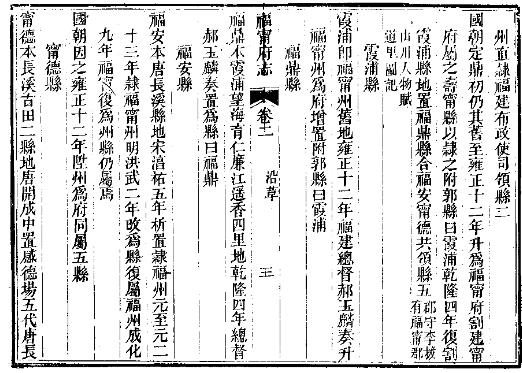 州直隸福建布政使司領縣二
國朝定鼎初仍其舊至雍正十二年升爲福甯府割建甯
府屬之壽甯縣以隸之附郭縣曰霞浦乾隆四年復割
霞浦縣地置福鼎縣合福安甯德共領縣五郡守李拔有福甯郡
山川人物賦
道里圖記
霞浦縣
霞浦卽福甯州舊地雍正十二年福建總督郝玉麟奏升
福甯州爲府增置附郭縣曰霞浦
福鼎縣
福甯府志 卷二 沿革 三
福鼎本霞浦望海育仁廉江遥香四里地乾隆四年總督
郝玉麟奏置爲縣曰福鼎
福安縣
福安本唐長溪縣地宋淳祐五年析置隸福州元至元二
十三年隸福甯州明洪武二年改爲縣復屬福州成化
九年福甯復爲州縣仍屬焉
國朝因之雍正十二年陞州爲府同屬五縣
甯德縣
甯德本長溪古田二縣地唐開成中置感德場五代唐長